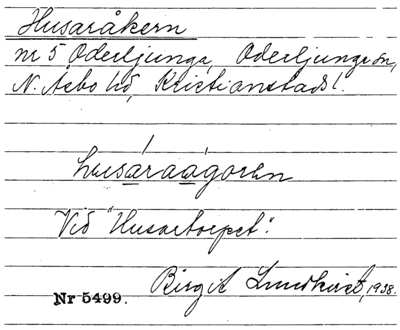 Husaråkern
nr 5 Oderljunga, Oderljunga sn,
N. Åsbo hd, Kristianstads l.
husaraagoren
Vid "Husartorpet".
Birgit Lundkvist, 1938.
Nr 5499.